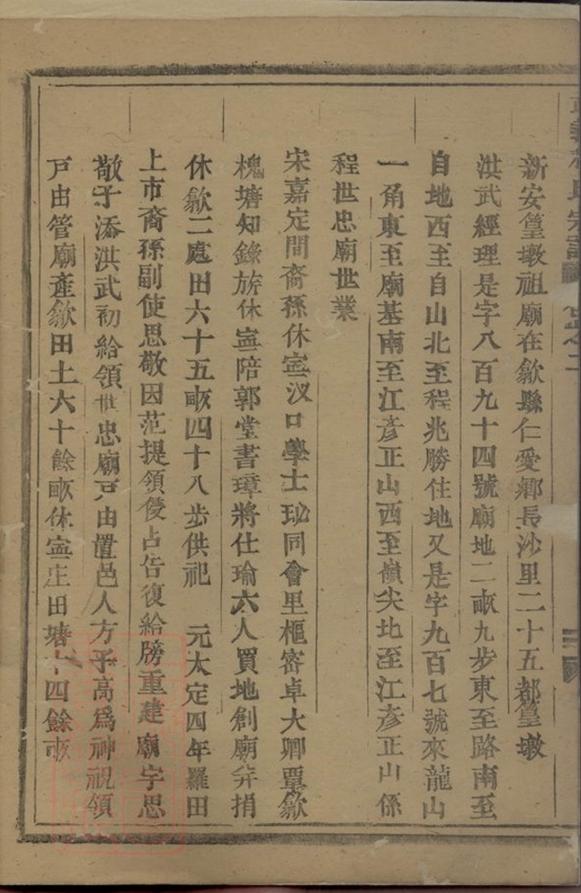 新安篁墩祖廟在歙縣仁愛鄉長沙里二十五都篁墩
洪武經理是字八百九十四號廟地二畝九步東至路南至
自地西至自山北至程兆勝住地又是字九百七號來龍山
一角東至廟基南至江彥正山西至嶺尖北至江彥正山係
程世忠廟世業
宋嘉定間裔孫休寧汊口學士珌同會里樞密卓大卿覃歙
槐塘知錄放休寧陪郭堂書璋將仕瑜六人買地創廟并捐
休歙二處田六十五畝四十八步供祀 元太定四年羅田
上市裔孫副使思敬因范提領侵占告復給牓重建廟宇思
敬子添洪武初給領世忠廟戶由置邑人方子高為神祝領
戶由管廟產歙田土六十餘畝休寧庄田塘四餘畝